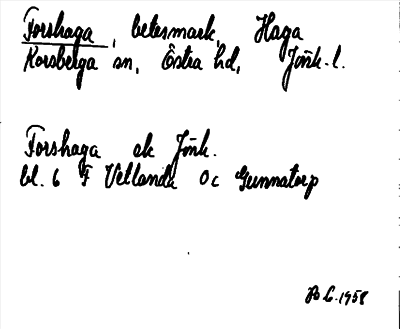 Forshaga, betesmark, Haga
Korsberga sn, Östra hd, Jönk. l.
Forshaga ek Jönk.
bl. 6 F Vetlanda Oc Gunnatorp
1958